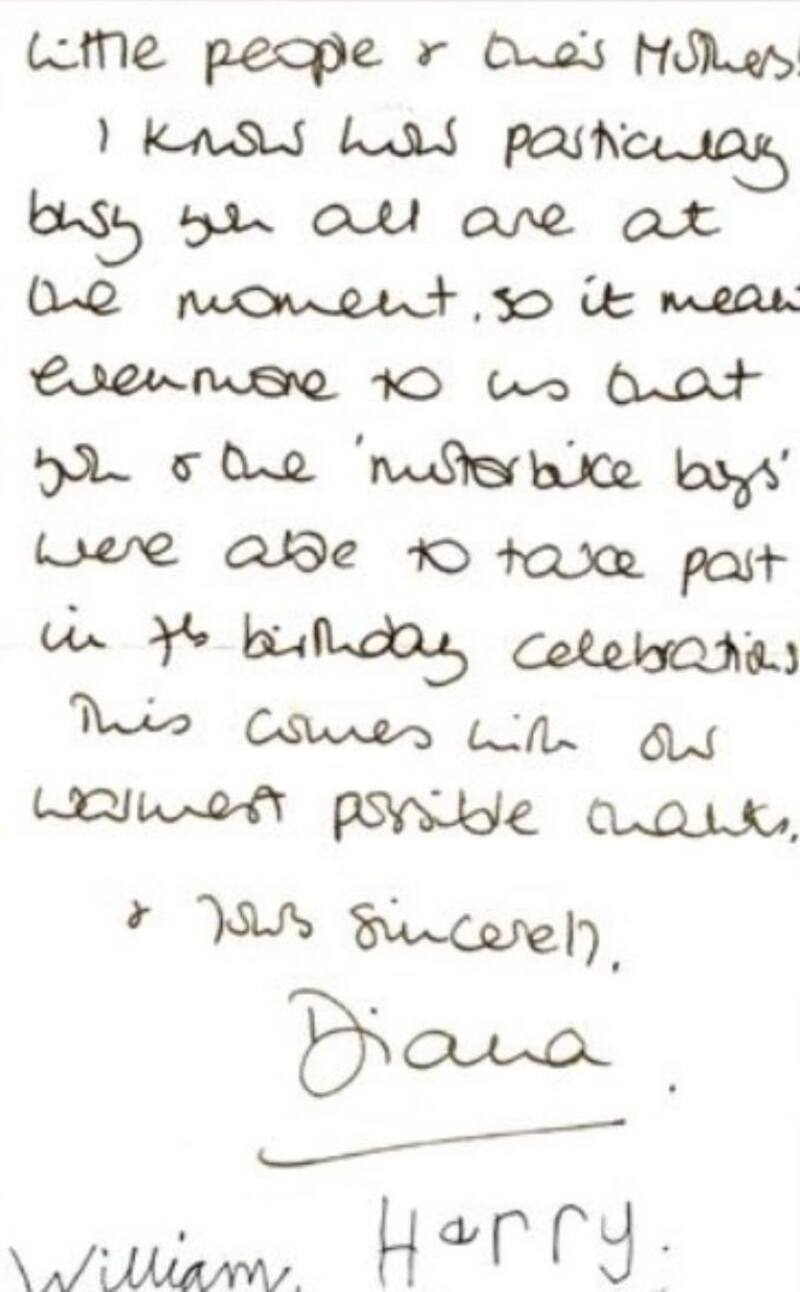 little people & their Mothers!
I know how particularly
busy you all are at
the moment, so it mean
even more to us that
you & the 'motorbike boys'
were able to take part
in the birthday celebrations
This comes with our
warmest possible thanks.
& Yours sincerely.
Diana.
Harry.
William.